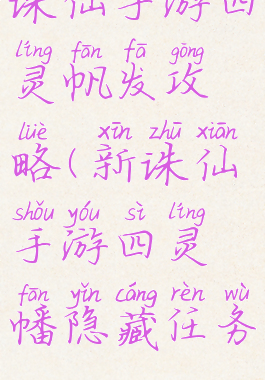 诛仙手游四
líng fān fā gōng
灵帆发攻
lüè xīn zhū xiān
略(新诛仙
shǒu yóu sì líng
手游四灵
fān yǐn cáng rèn wù
幡隐藏任务